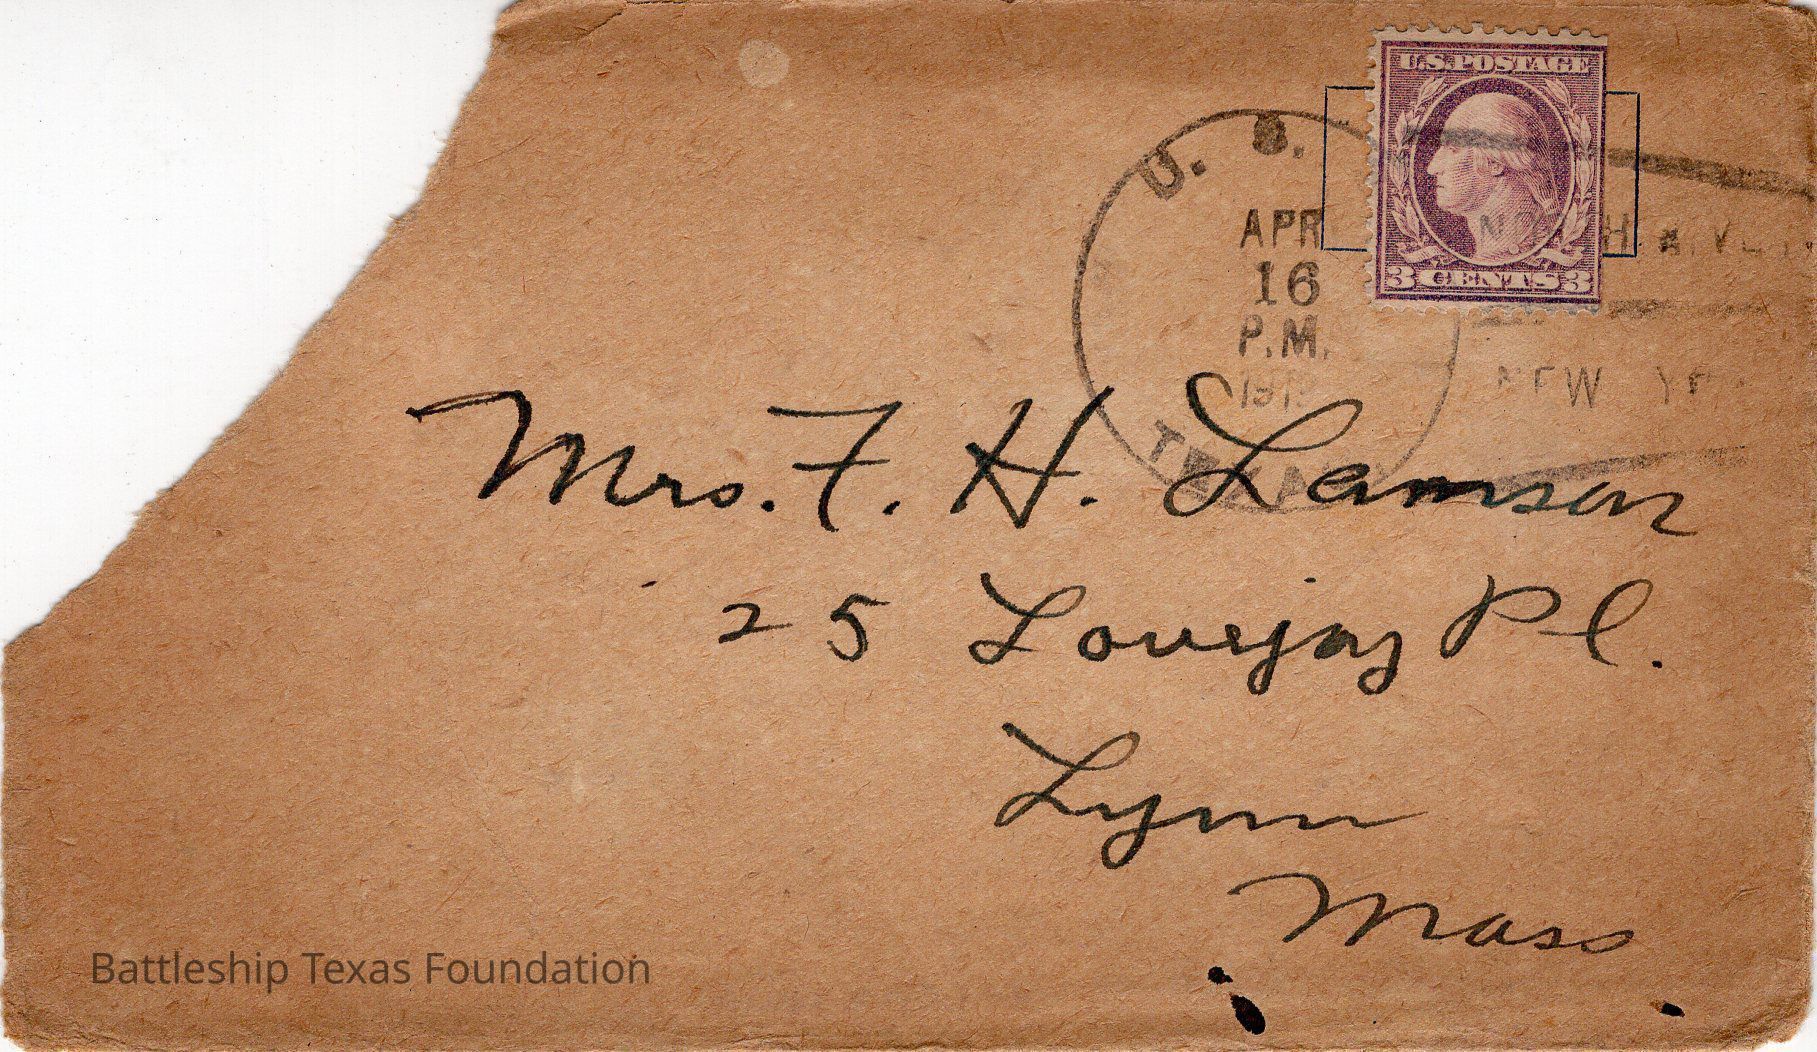 U.S. POSTAGE
3 CENTS 3
U. S.
APR
16
P.M.
TEXAS
NEW
Mrs. F. H. Lamson
25 Lovejoy Pl.
Lynn
Mass
Battleship Texas Foundation